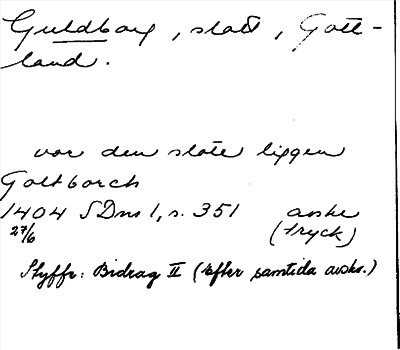 Guldborg, slott, Gott-
land.
vor den slote liggen
Goltborch
1404 SDns 1, s. 351 avskr
27/6 (tryck)
Styffe: Bidrag II (Efter samtida avskr.)